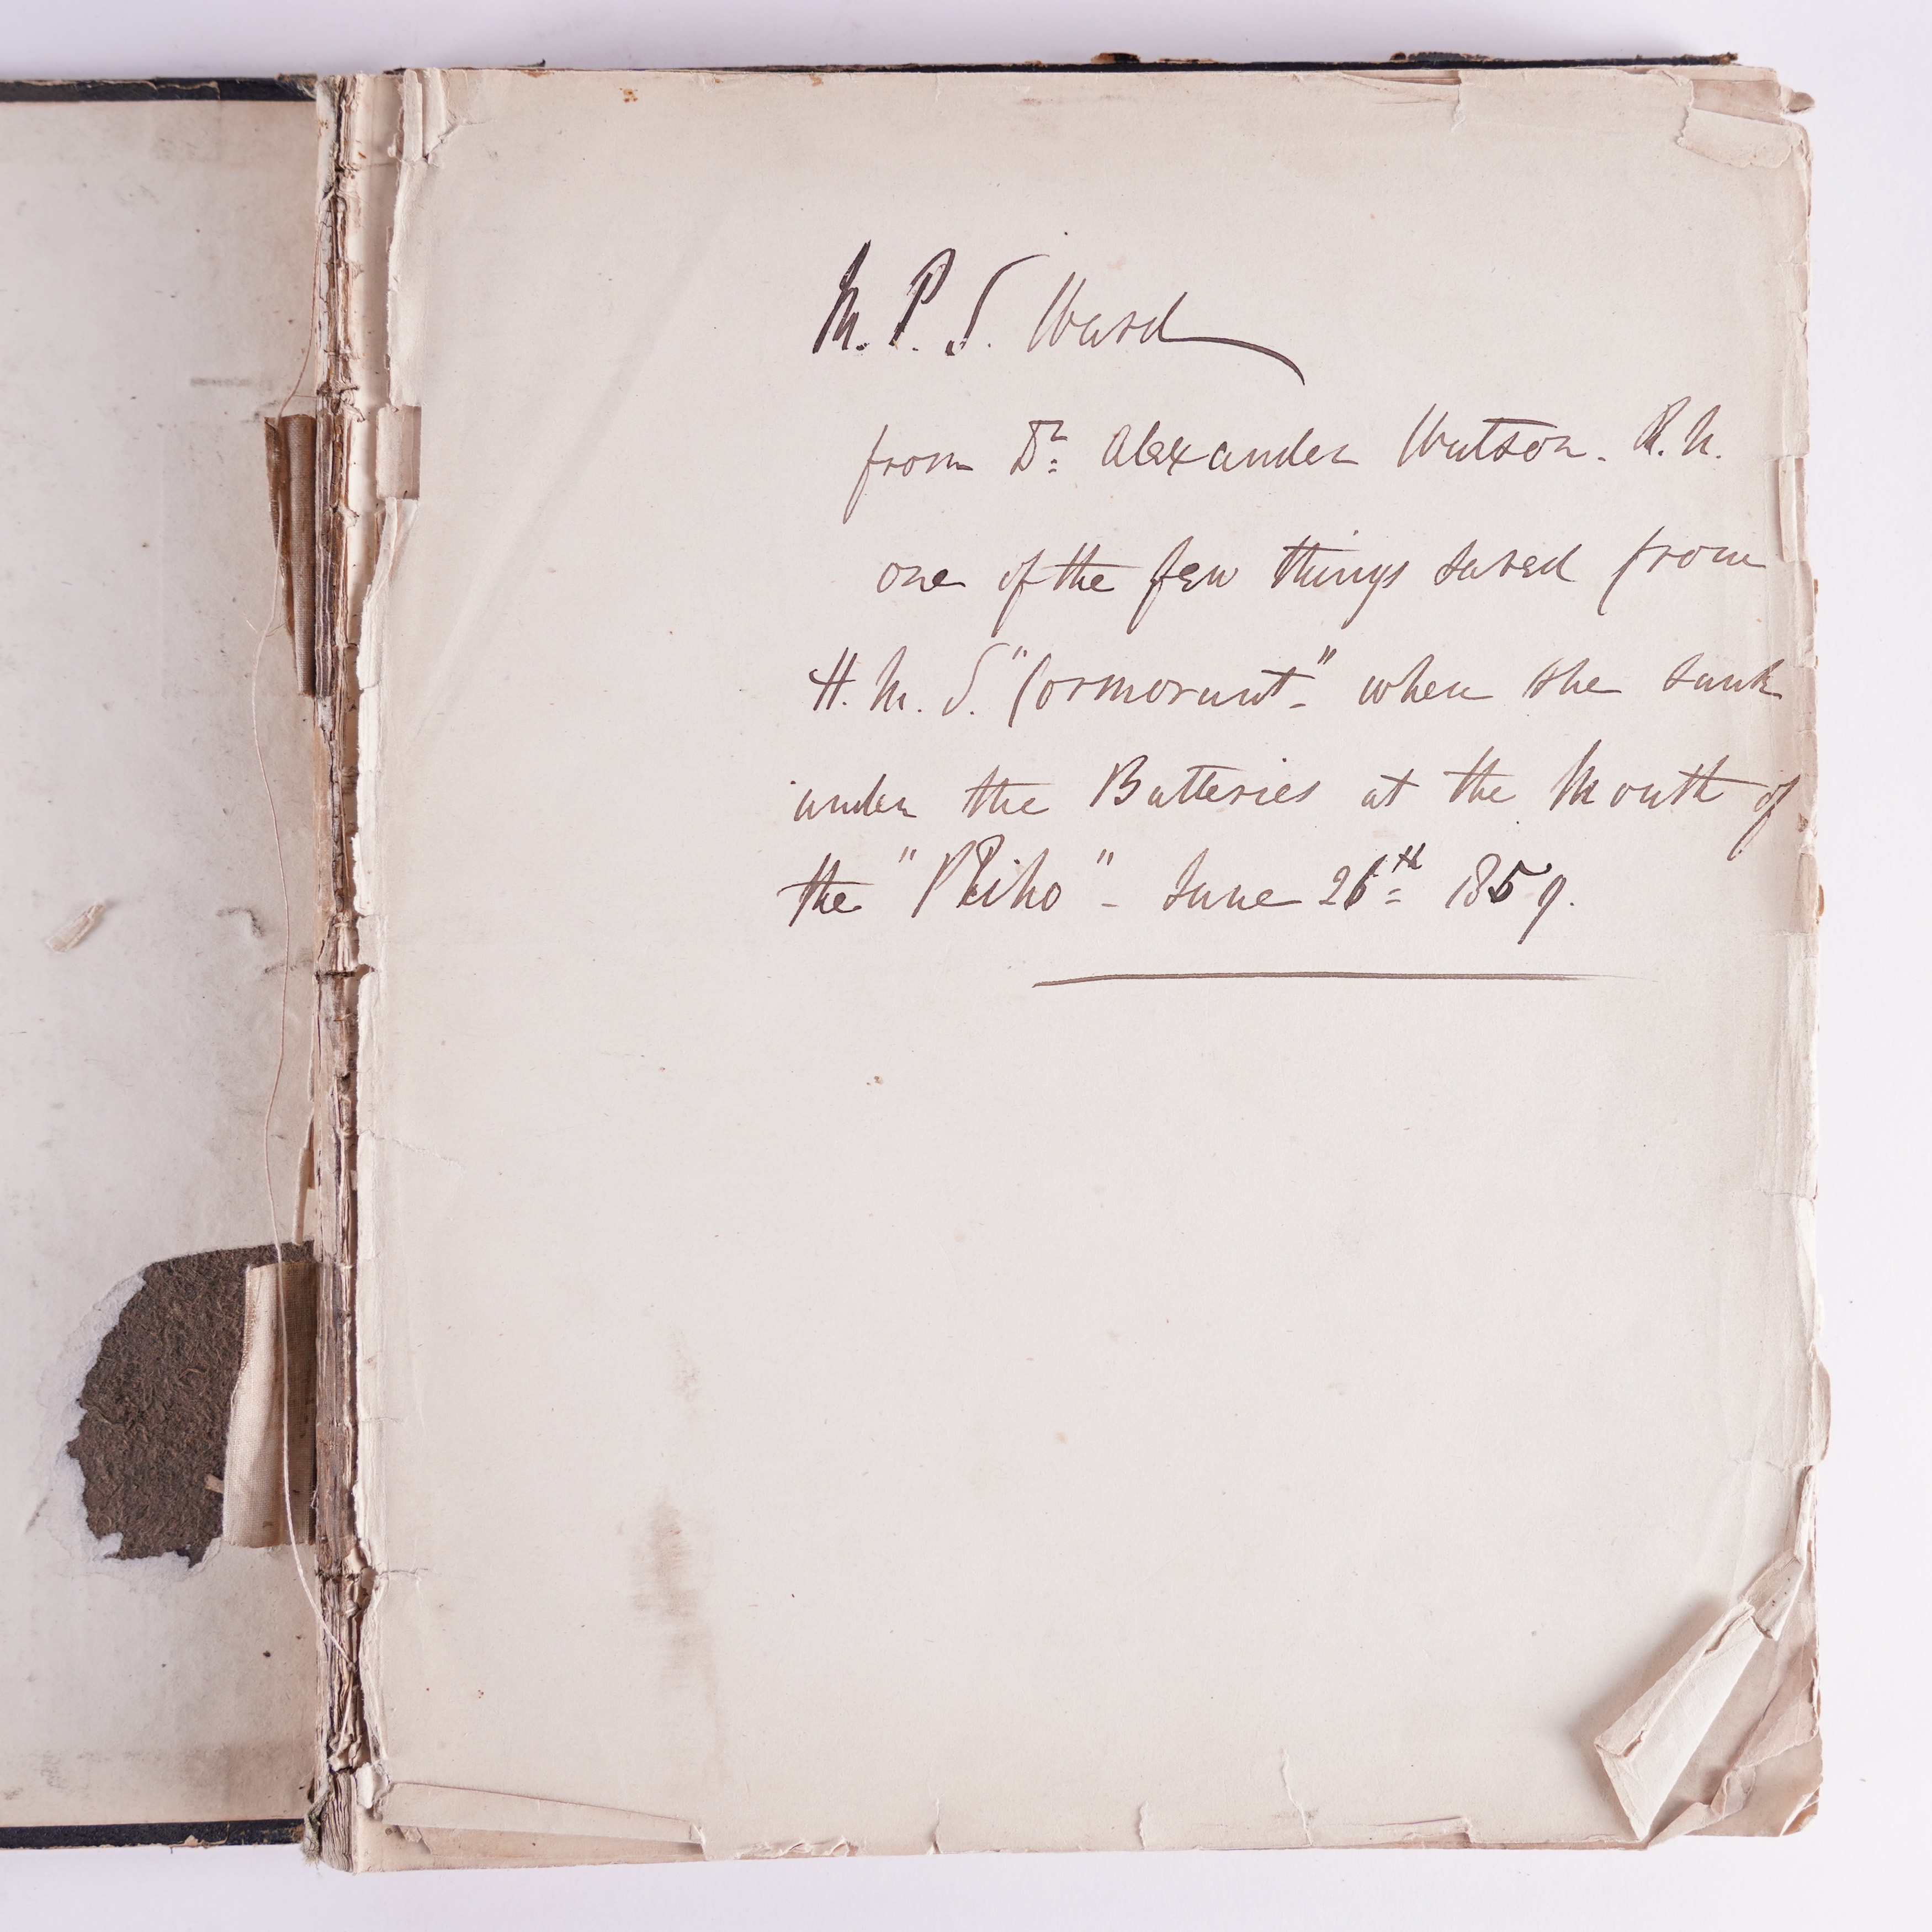 M. P. S. Ward
from Dr. Alexander Watson. R. N.
one of the few things saved from
H. M. S. "Cormorant" - when she sunk
under the Batteries at the Mouth of
the "Peiho" - June 26th 1859.